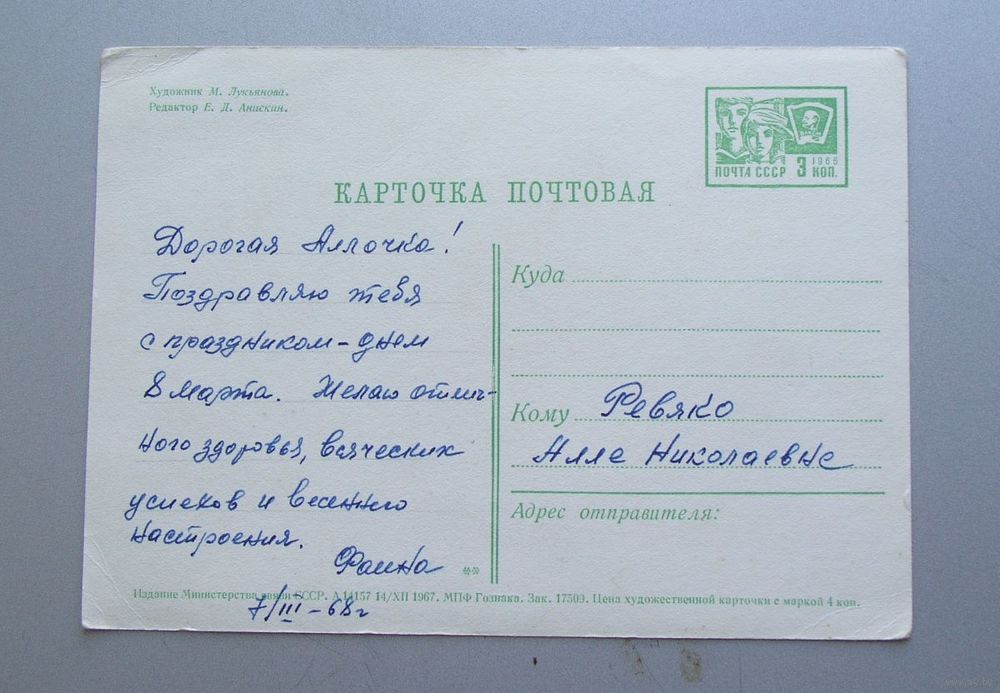 Художник М. Лукьянова.
Редактор Е. Д. Анискин.
1966
ПОЧТА СССР 3 КОП.
КАРТОЧКА ПОЧТОВАЯ
Дорогая Аллочка!
Поздравляю тебя
с праздником - днем
8 Марта. Желаю отлич-
ного здоровья, всяческих
успехов и весеннего
настроения.
Фаина
7/III - 68 г
Куда
Кому Ревяко
Алле Николаевне
Адрес отправителя:
**
Издание Министерства связи СССР. А 14157 14/XII 1967. МПФ Гознака. Зак. 17503. Цена художественной карточки с маркой 4 коп.